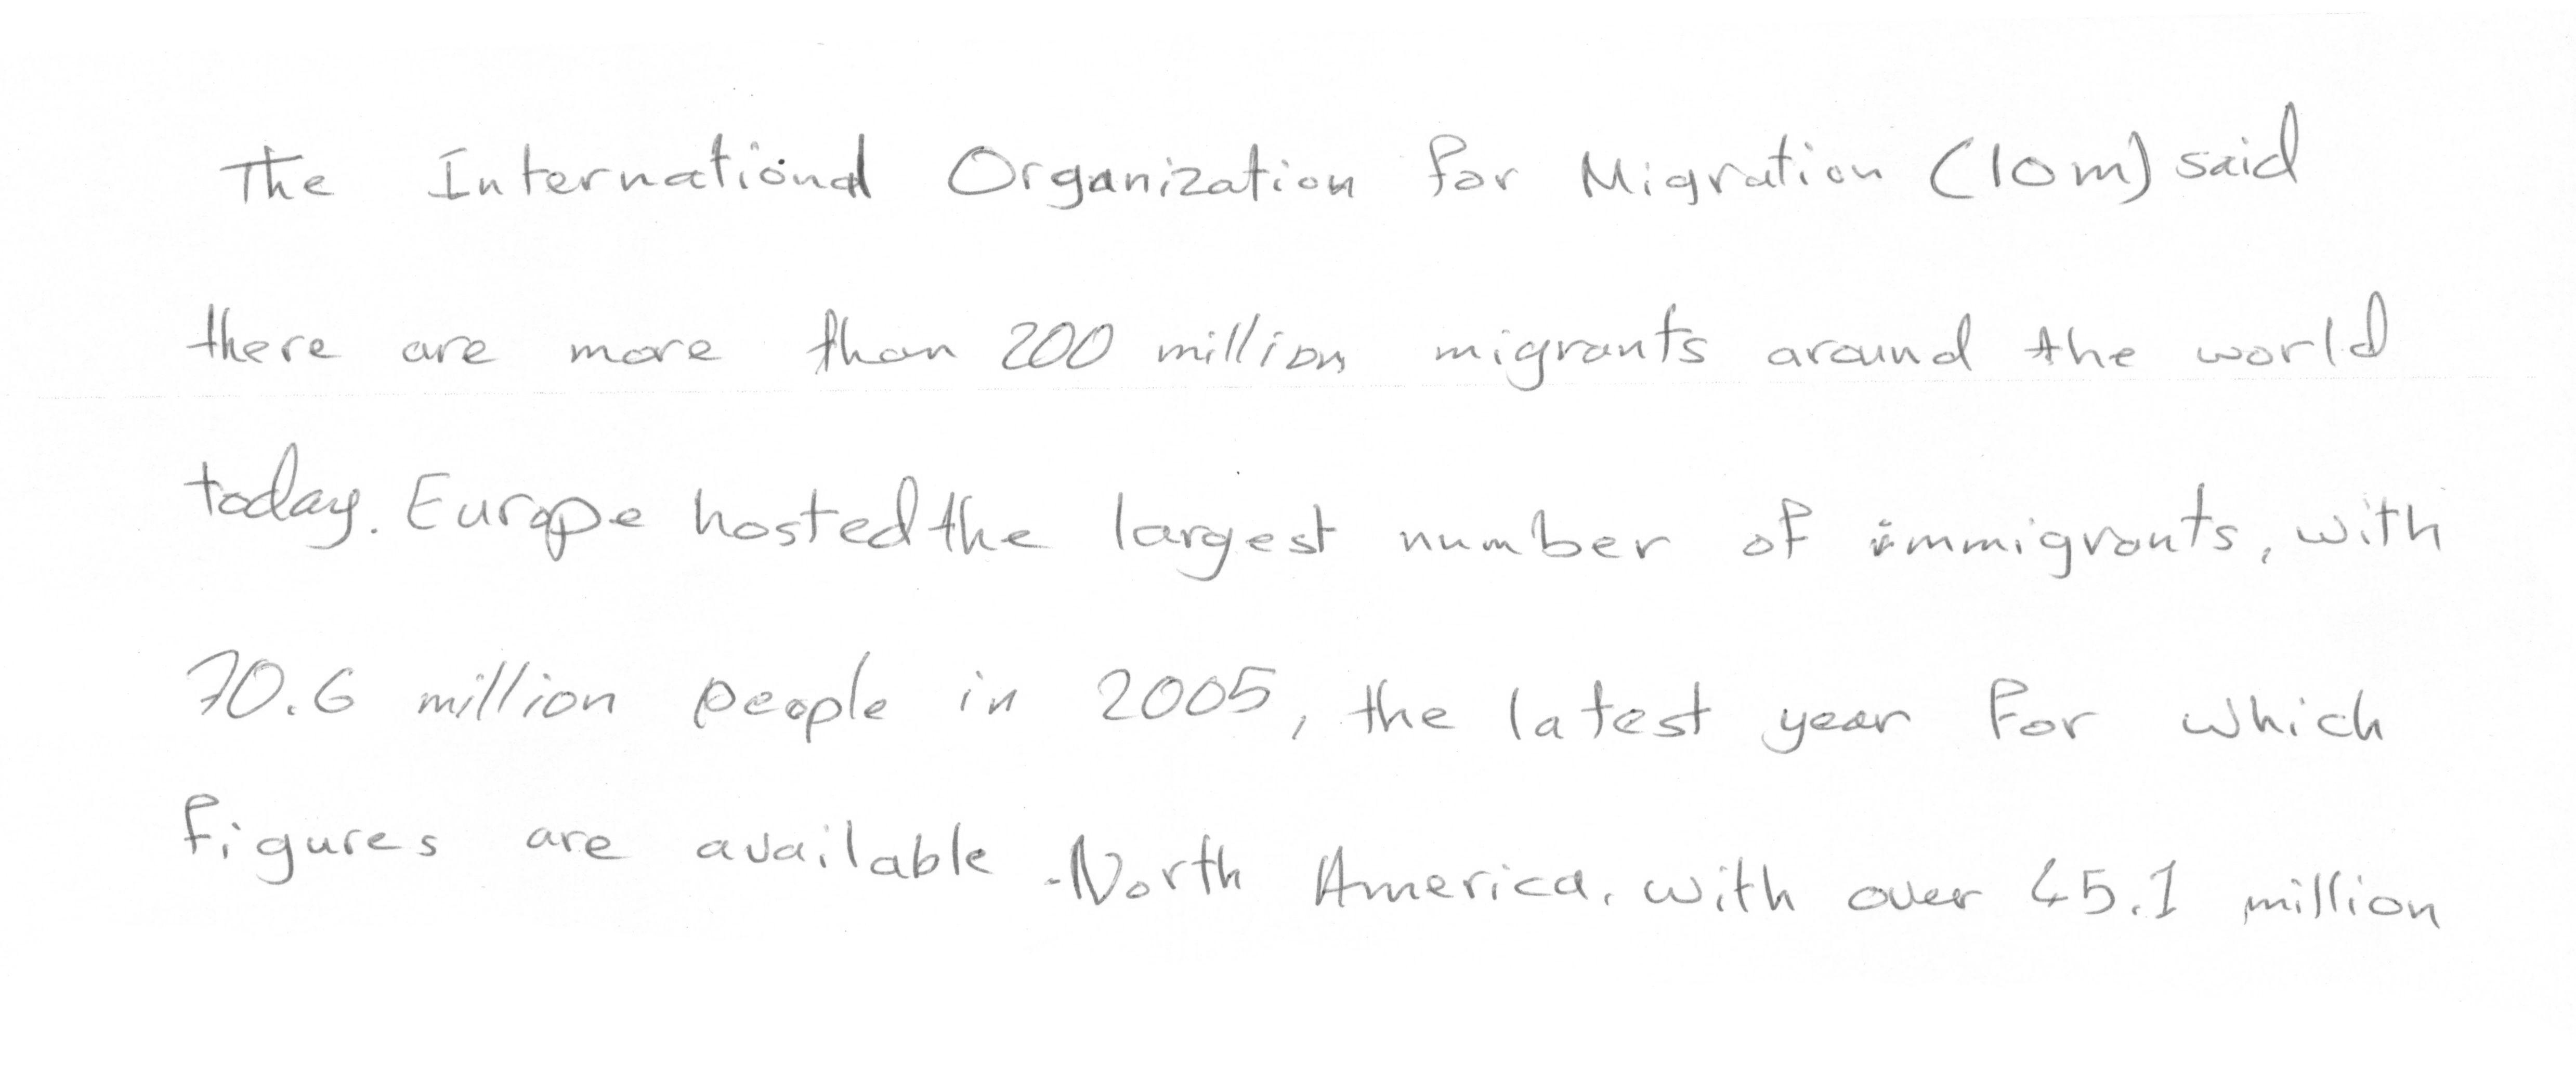 The International Organization for Migration (IOM) said
there are more than 200 million migrants around the world
today. Europe hosted the largest number of immigrants, with
70.6 million people in 2005, the latest year for which
figures are available. North America, with over 45.1 million